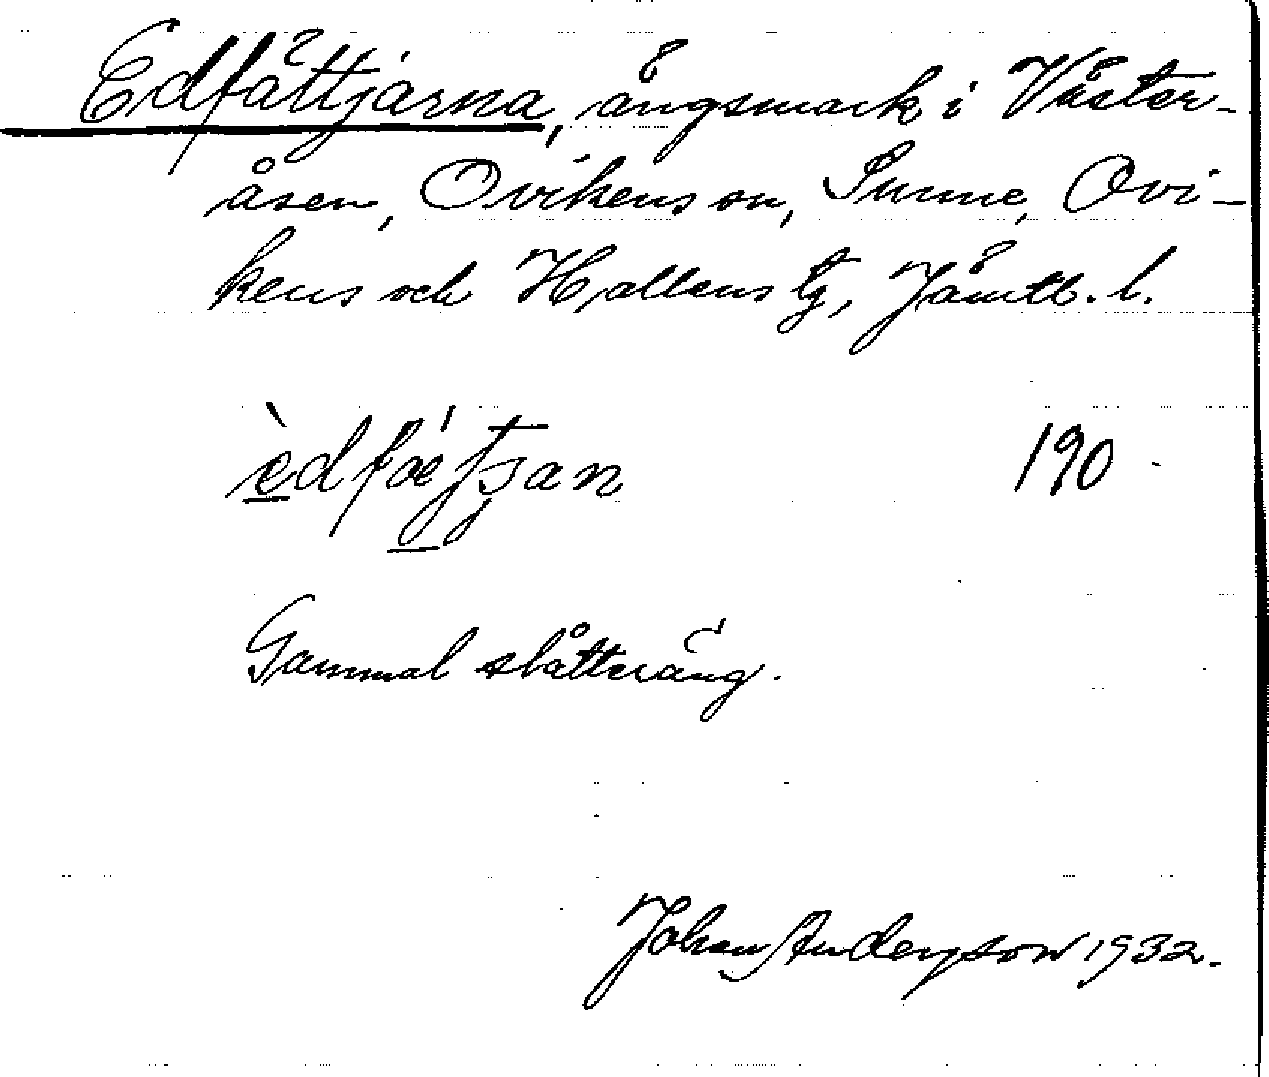 Edfättjärna, ängsmark i Väster-
åsen, Ovikens sn, Sunne, Ovi-
kens och Hallens tg, Jämtl. l.
190
Gammal slåtteräng.
Johan Anderson 1932.